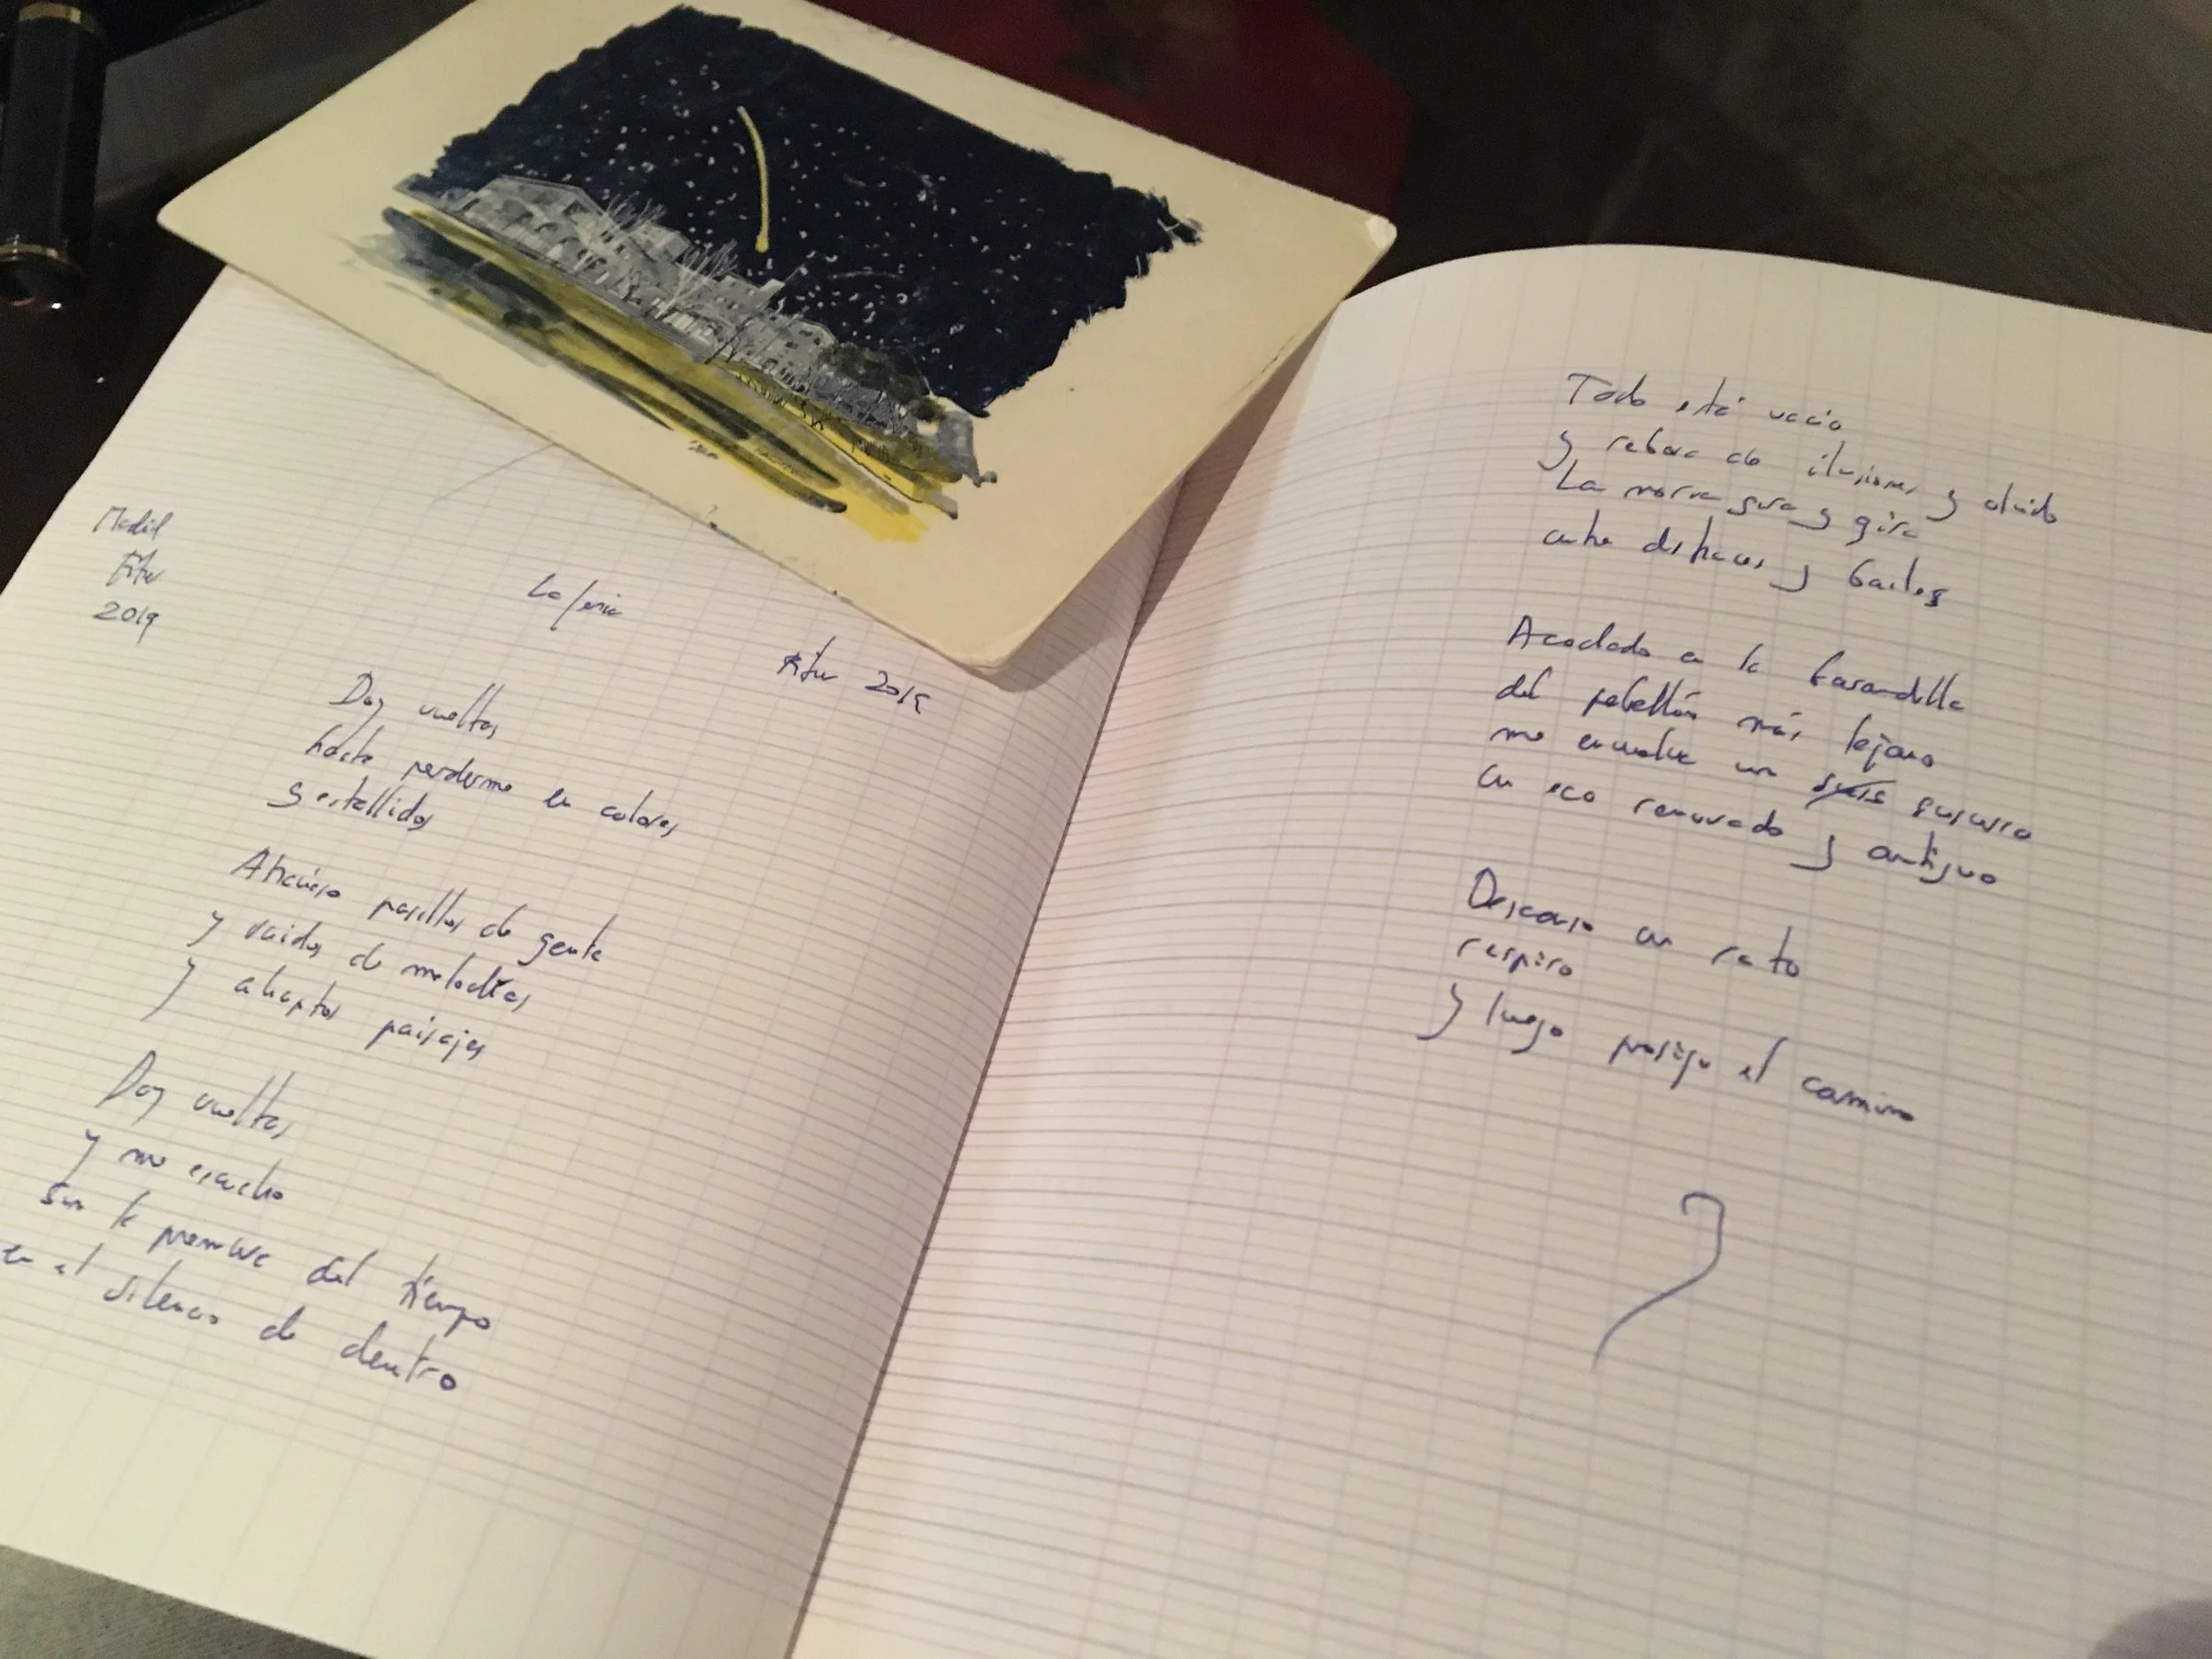 Madrid
Fitur
2019
La feria
Fitur 2019
Doy vueltas
hasta perderme en colores
y estallidos
Atravieso pasillos de gente
y ruidos de melodías
y atrapados paisajes
Doy vueltas
y me escucho
sin la premura del tiempo
en el silencio de dentro
Todo está vacío
y rebosa de ilusiones y olvido
La noria gira y gira
entre disfraces y bailes
Acodado a la barandilla
del pabellón más lejano
me envuelve un susurro
un eco renovado y antiguo
Descanso un rato
respiro
y luego prosigo el camino